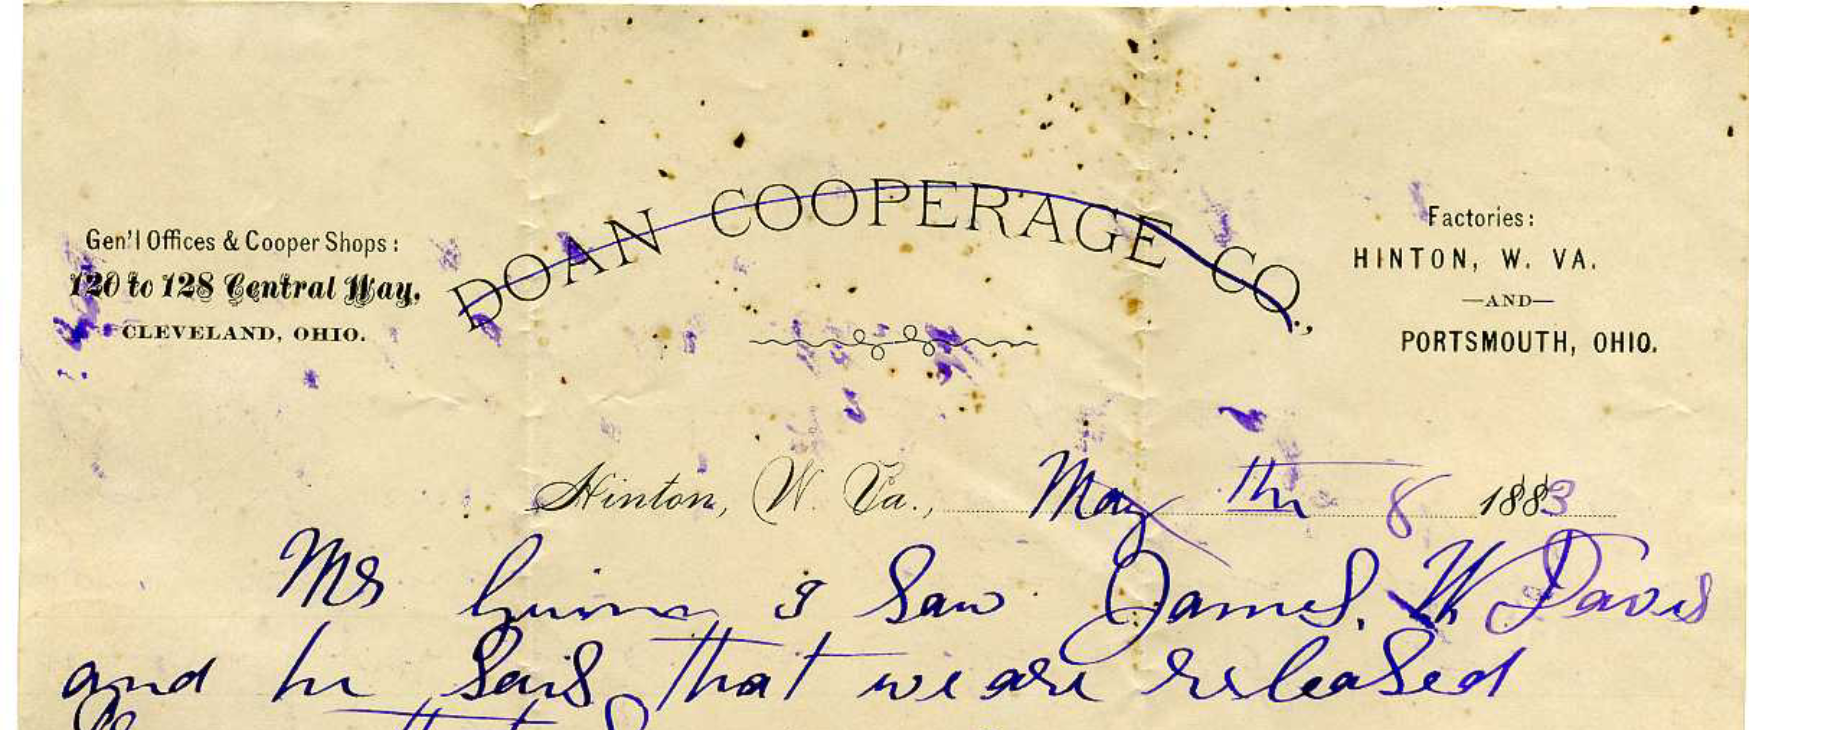 DOAN COOPERAGE CO.,
Gen'l Offices & Cooper Shops:
120 to 128 Central Way,
CLEVELAND, OHIO.
Factories:
HINTON, W. VA.
—AND—
PORTSMOUTH, OHIO.
Hinton, W. Va., May th 8 1883
Mr Gwinn I Saw James. W Davis
and he Said that we are released